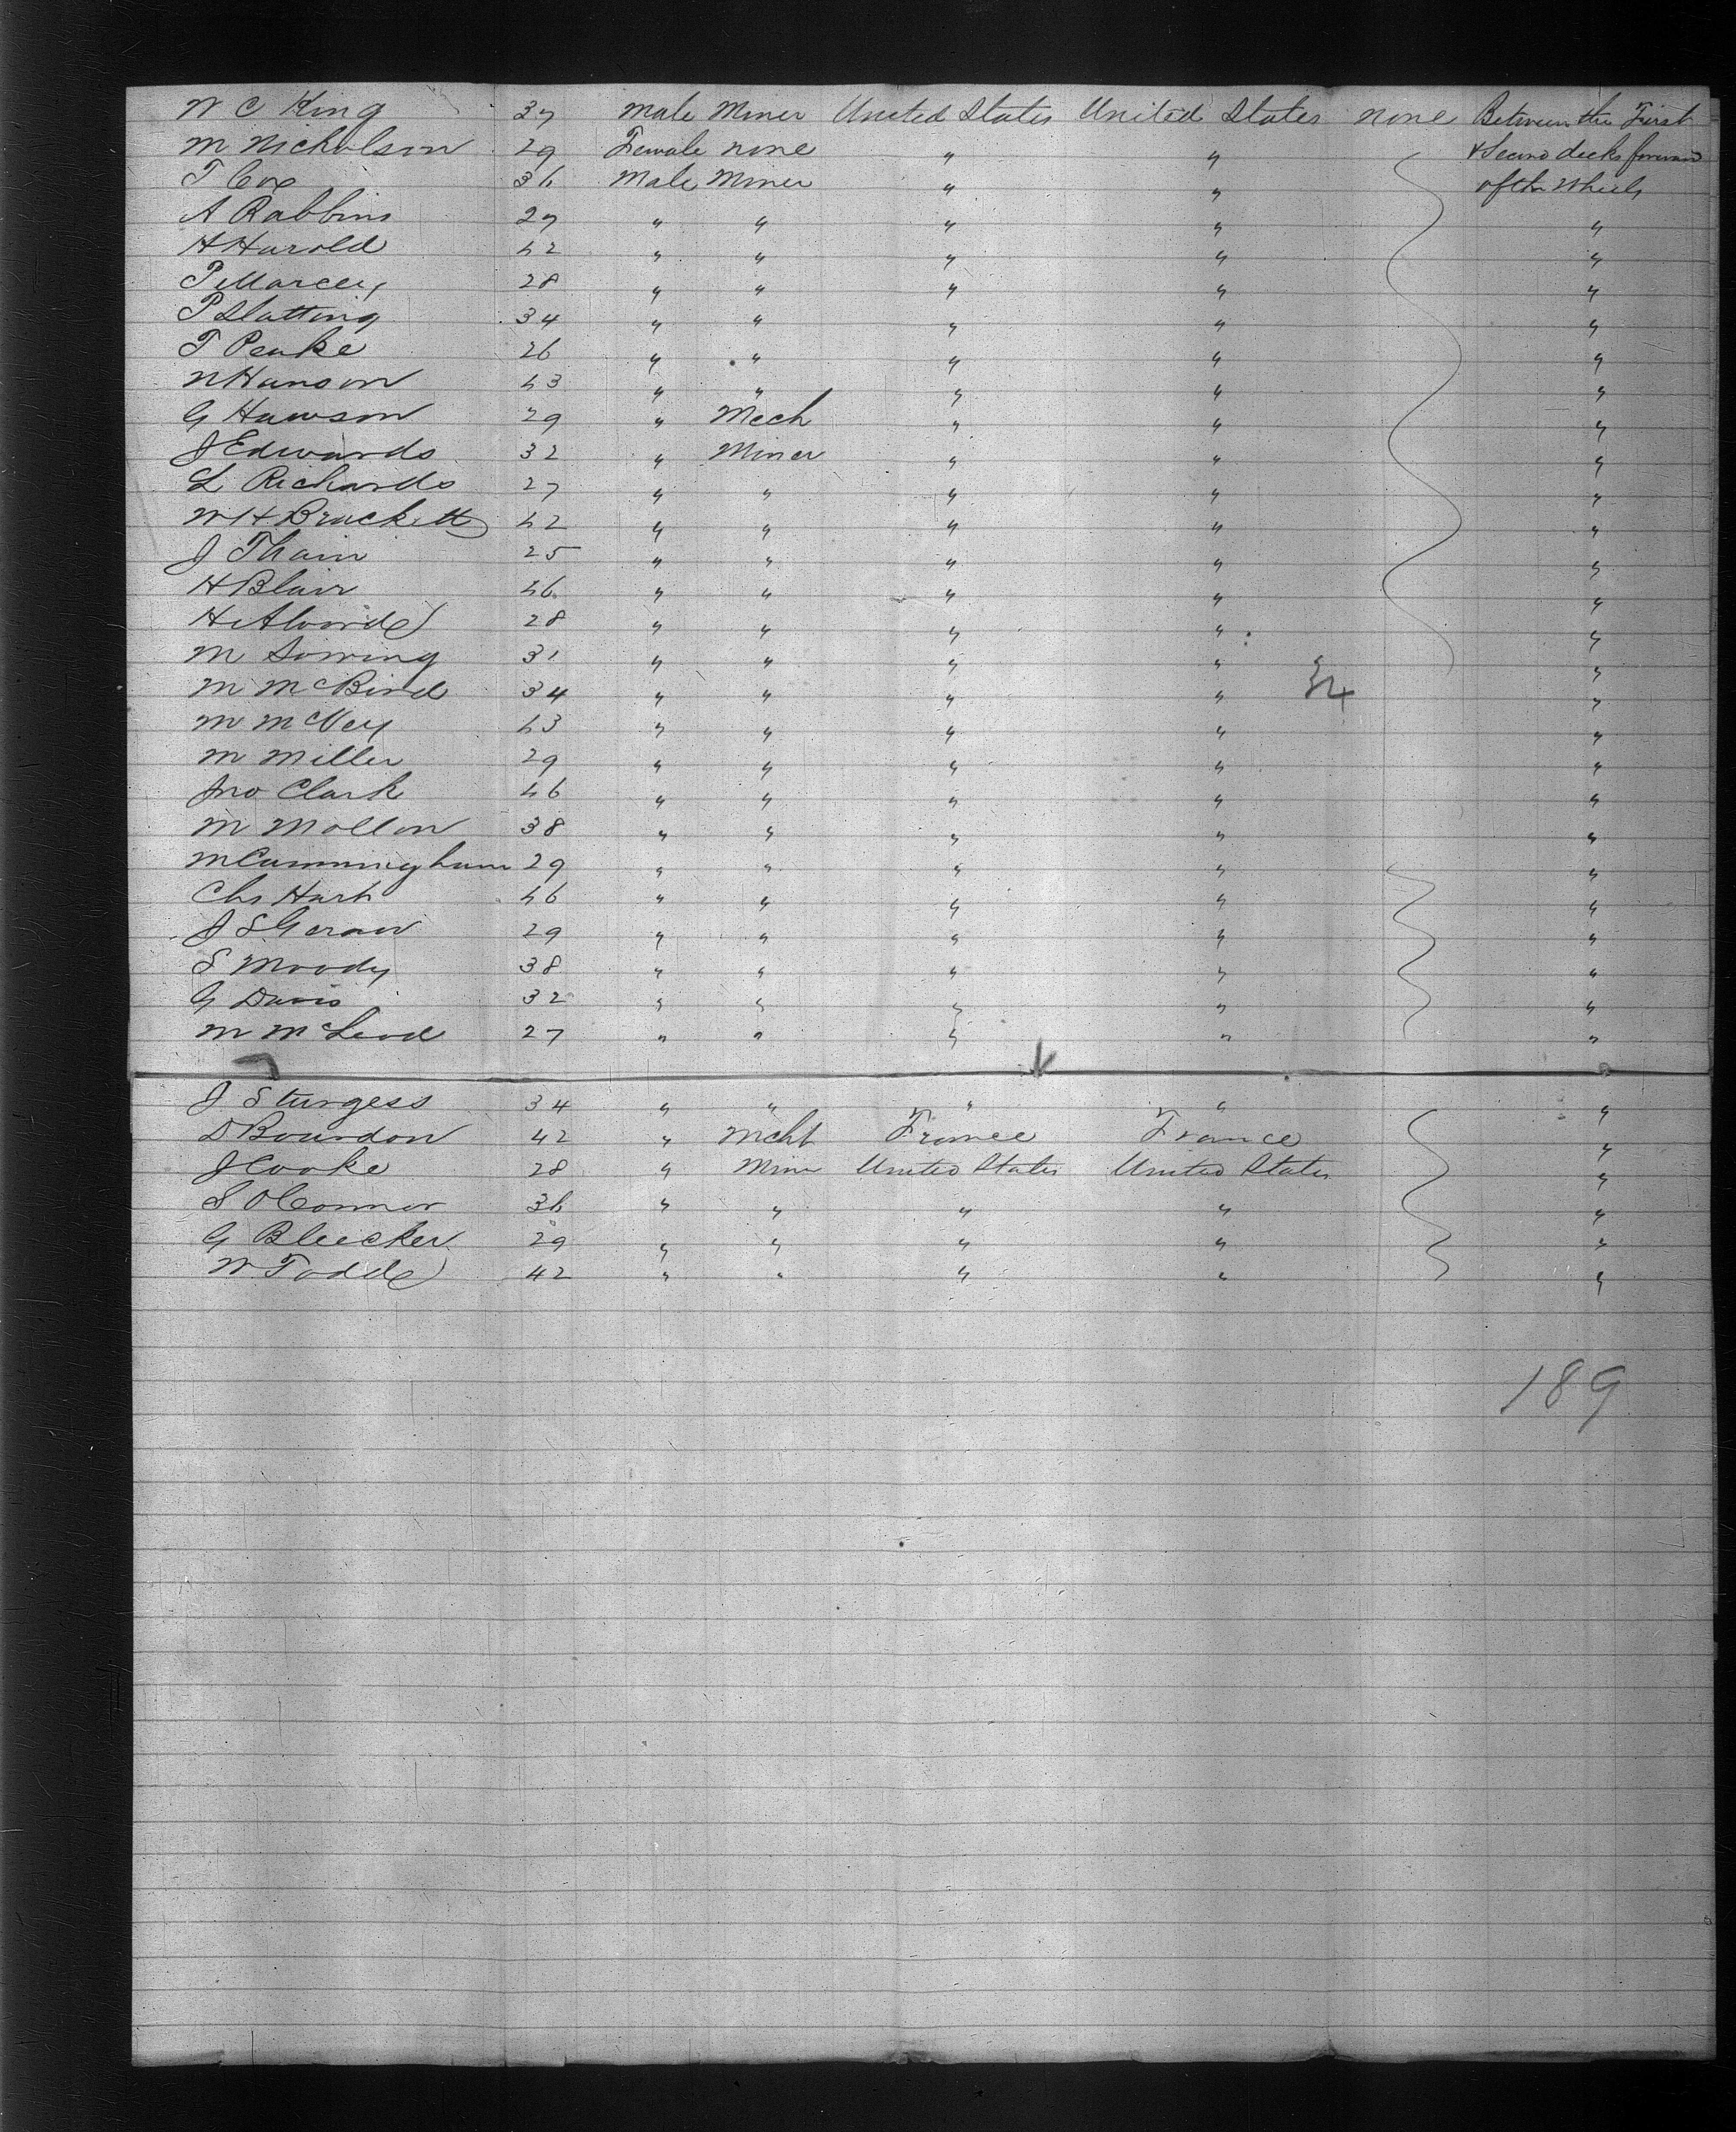 W C King 37 Male Miner United States United States none Between the First
M Nicholson 29 Female none " " & Second decks forward
T Cox 36 Male Miner " " of the Wheels
A Robbins 27 " " " " "
H Harold 42 " " " " "
P Marcey 28 " " " " "
P Slatting 34 " " " " "
T Peake 26 " " " " "
N Hanson 43 " " " " "
G Hawson 29 " Mech " " "
J Edwards 32 " Miner " " "
L Richards 27 " " " " "
W H Brackett 42 " " " " "
J Thain 25 " " " " "
H Blair 46 " " " " "
H Alvord 28 " " " " "
M Sowing 31 " " " " "
M McBird 34 " " " " "
34
M McVey 43 " " " " "
M Miller 29 " " " " "
Jno Clark 46 " " " " "
M Mollon 38 " " " " "
M Cunningham 29 " " " " "
Chs Hart 46 " " " " "
J S Geraw 29 " " " " "
S Moody 38 " " " " "
G Davis 32 " " " " "
M McLeod 27 " " " " "
J Sturgess 34 " " " " "
D Bourdon 42 " Mcht France France "
J Cooke 28 " Mine United States United States "
S OConnor 36 " " " " "
G Bleecker 29 " " " " "
W Todd 42 " " " " "
189